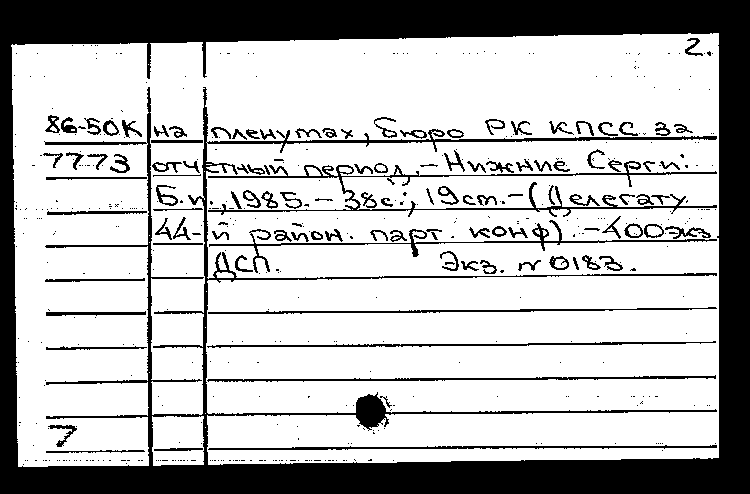 2.
86-50К на пленумах, бюро РК КПСС за
7773 отчетный период. - Нижние Серги:
Б.и., 1985. - 38с.; 19см. - (Делегату
44-й район. парт. конф). - 400экз.
ДСП. Экз. № 0183.
7